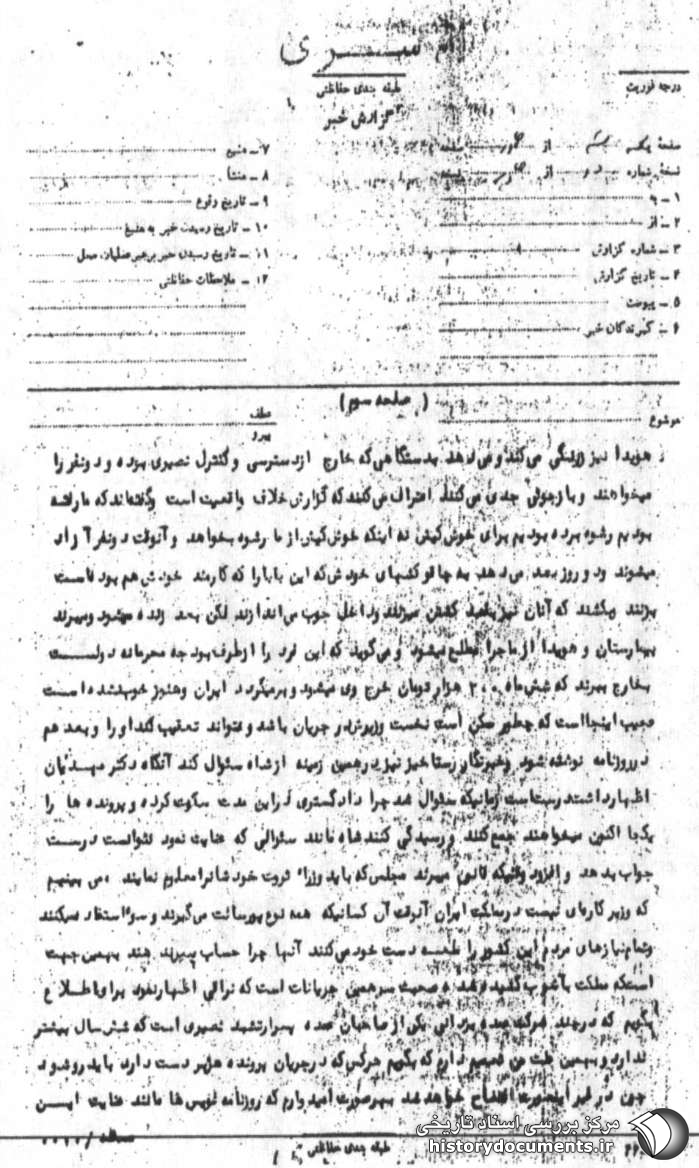 سری
درجه فوریت
طبقه بندی حفاظتی
گزارش خبر
صفحه یکم از صفحه
نسخه شماره از نسخه
۱ – به
۲ – از
۳ – شماره گزارش
۴ – تاریخ گزارش
۵ – پیوست
۶ – گیرندگان خبر
۷ – منبع
۸ – منشأ
۹ – تاریخ وقوع
۱۰ – تاریخ رسیدن خبر به منبع
۱۱ – تاریخ رسیدن خبر برهبر عملیات محل
۱۲ – ملاحظات حفاظتی
( صفحه سوم )
موضوع
عطف
پیرو
هویدا نیز زندگی می‌کند و می‌دهد بدستگاهی که خارج ازدسترسی وکنترل نصیری بوده و دونفر را
میخواهند و بازجوئی جدی می‌کنند اعتراف می‌کنند که گزارش خلاف واقعیت است وگفته‌اند که ما رفته
بودیم رشوه برده بودیم برای خوش‌کیش نه اینکه خوش‌کیش از ما رشوه بخواهد وآنوقت دونفر آزاد
میشوند ودو روز بعد می‌دهد به چاقوکشهای خودش که این بابا را که کارمند خودش هم بوده‌است
بزنند وبکشند که آنان نیز بقصد کشتن میزنند وداخل جوب می‌اندازند لکن بعد زنده میشود ومیبرند
بیمارستان و هویدا از ماجرا مطلع میشود و می‌گوید که این فرد را ازطرف بودجه محرمانه دولت
بخارج ببرند که شش‌ماه ۲۰۰ هزار تومان خرج وی میشود و برمیگردد ایران وهنوز خوب نشده است
عجیب اینجا است که چطور ممکن است نخست وزیرش در جریان باشد و نتواند تعقیب کند او را و بعد هم
درروزنامه نوشته شود وخبرنگار رستاخیز نیز درهمین زمینه ازشاه سئوال کند آنگاه دکتر مهدیان
اظهار داشت درست است زمانیکه سئوال شد چرا دادگستری در این مدت سکوت کرده و پرونده ها را
یکجا اکنون میخواهند جمع کنند و رسیدگی کنند شاه مانند سئوالی که عنایت نمود نتوانست درست
جواب بدهد و افزود وقتیکه قانون میبرند مجلس که باید وزراء ثروت خودشانرا معلوم نمایند ، می بینیم
که وزیر کاره‌ای نیست در مملکت ایران آنوقت آن کسانیکه همه نوع پورسانت می‌گیرند و سوء استفاده میکنند
وتمام نیازهای مردم این کشور را طعمه دست خود می‌کنند آنها چرا حساب پس نمی‌دهند بهمین جهت
است که مملکت بآشوب کشیده شده صحبت سرهمین جریانات است که نراقی اظهار نمود برای اطلاع
بگویم که در چند شرکت عمده یزدانی یکی از صاحبان عمده پسر ارتشبد نصیری است که شش سال بیشتر
ندارد و بهمین علت من تصمیم دارم که بگویم هرکس که درجریان پرونده هژبر دست دارد باید رو شود
چون در غیر اینصورت افتضاح خواهد شد بهرصورت امیدوارم که روزنامه نویس ها مانند عنایت این
طبقه بندی حفاظتی
مرکز بررسی اسناد تاریخی
historydocuments.ir